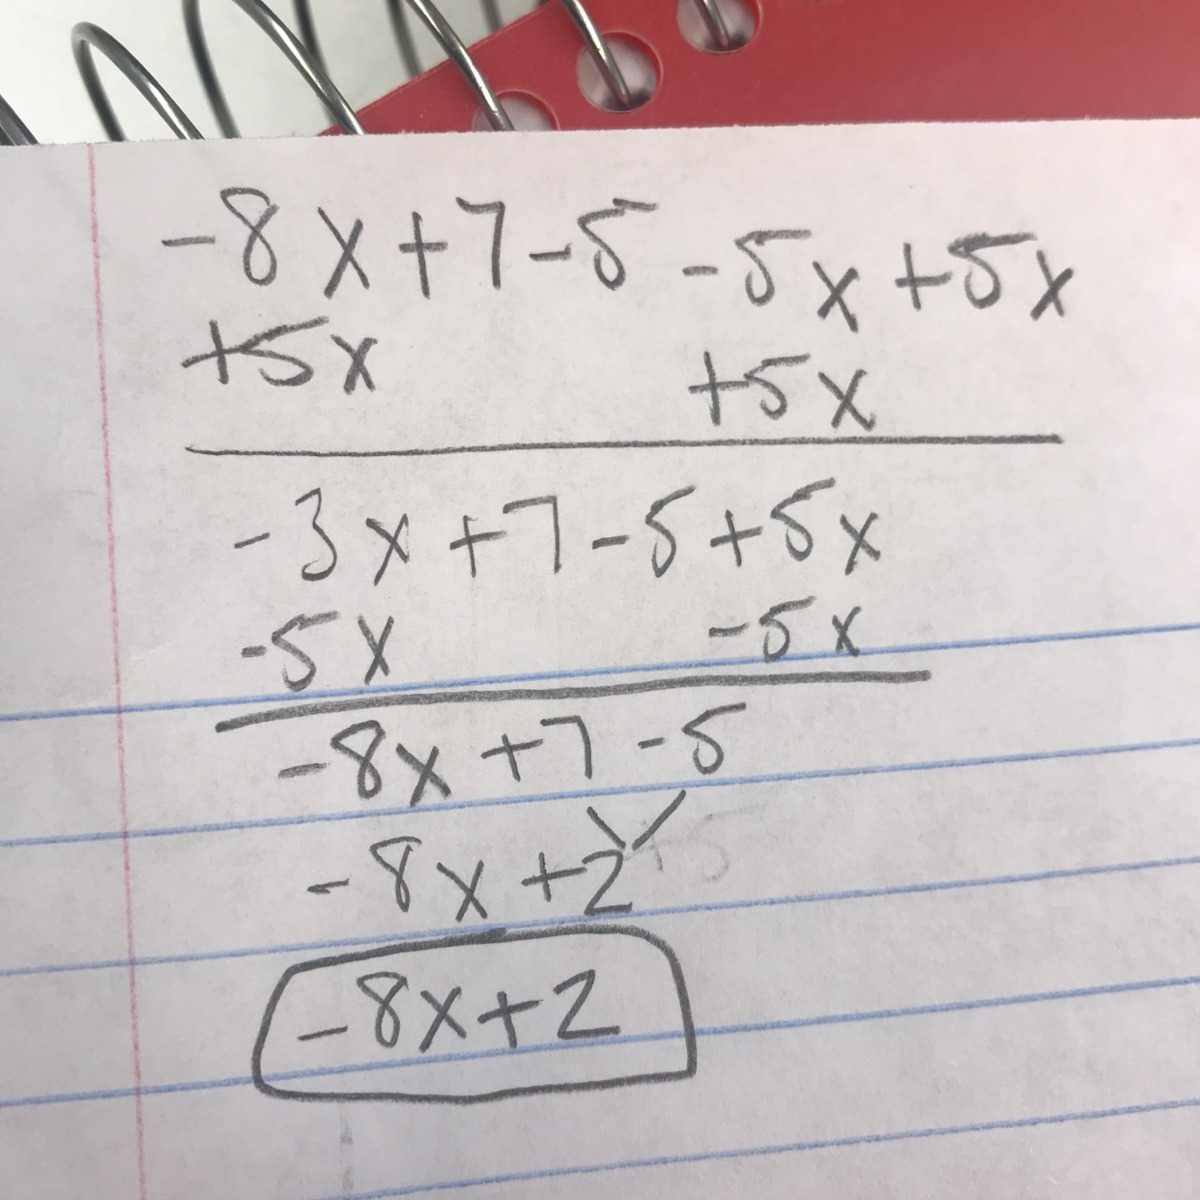 -8x+7-5-5x+5x
+5x +5x
-3x+7-5+5x
-5x -5x
-8x+7-5
-8x+2
-8x+2